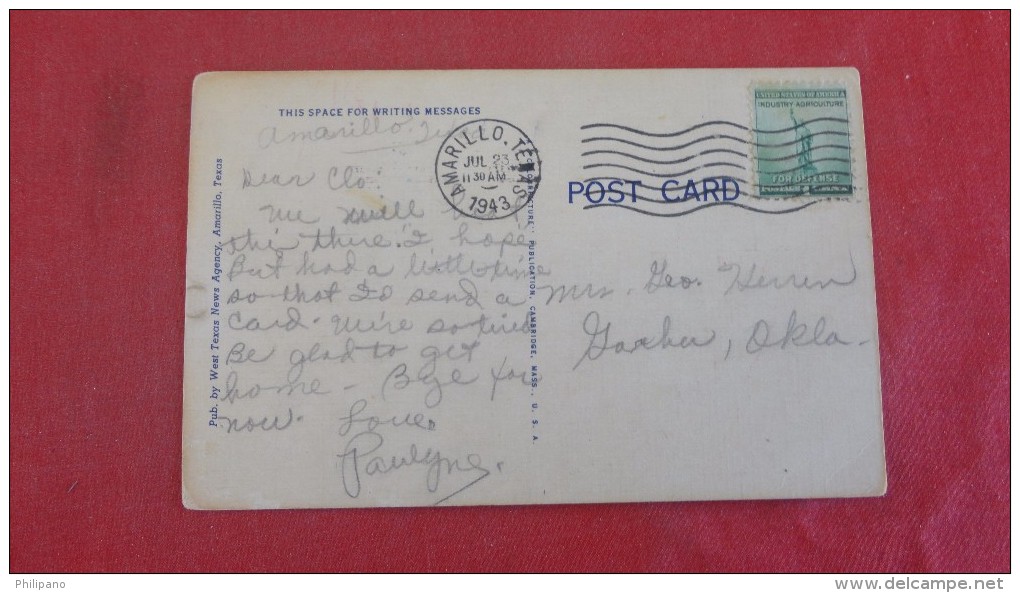 THIS SPACE FOR WRITING MESSAGES
Amarillo.
Dear Clo:
We will
this there. I hope
But had a little time
so that I'd send a
card. We're so tired
Be glad to get
home - Bye for
now. Love
Paulyne.
Pub. by West Texas News Agency, Amarillo, Texas
PUBLICATION, CAMBRIDGE, MASS., U. S. A.
AMARILLO, TEXAS
JUL 23
11 30 AM
1943
UNITED STATES OF AMERICA
INDUSTRY AGRICULTURE
FOR DEFENSE
POST CARD
Mrs. Geo. Herren
Garber, Okla.
Philipano
www.delcampe.net